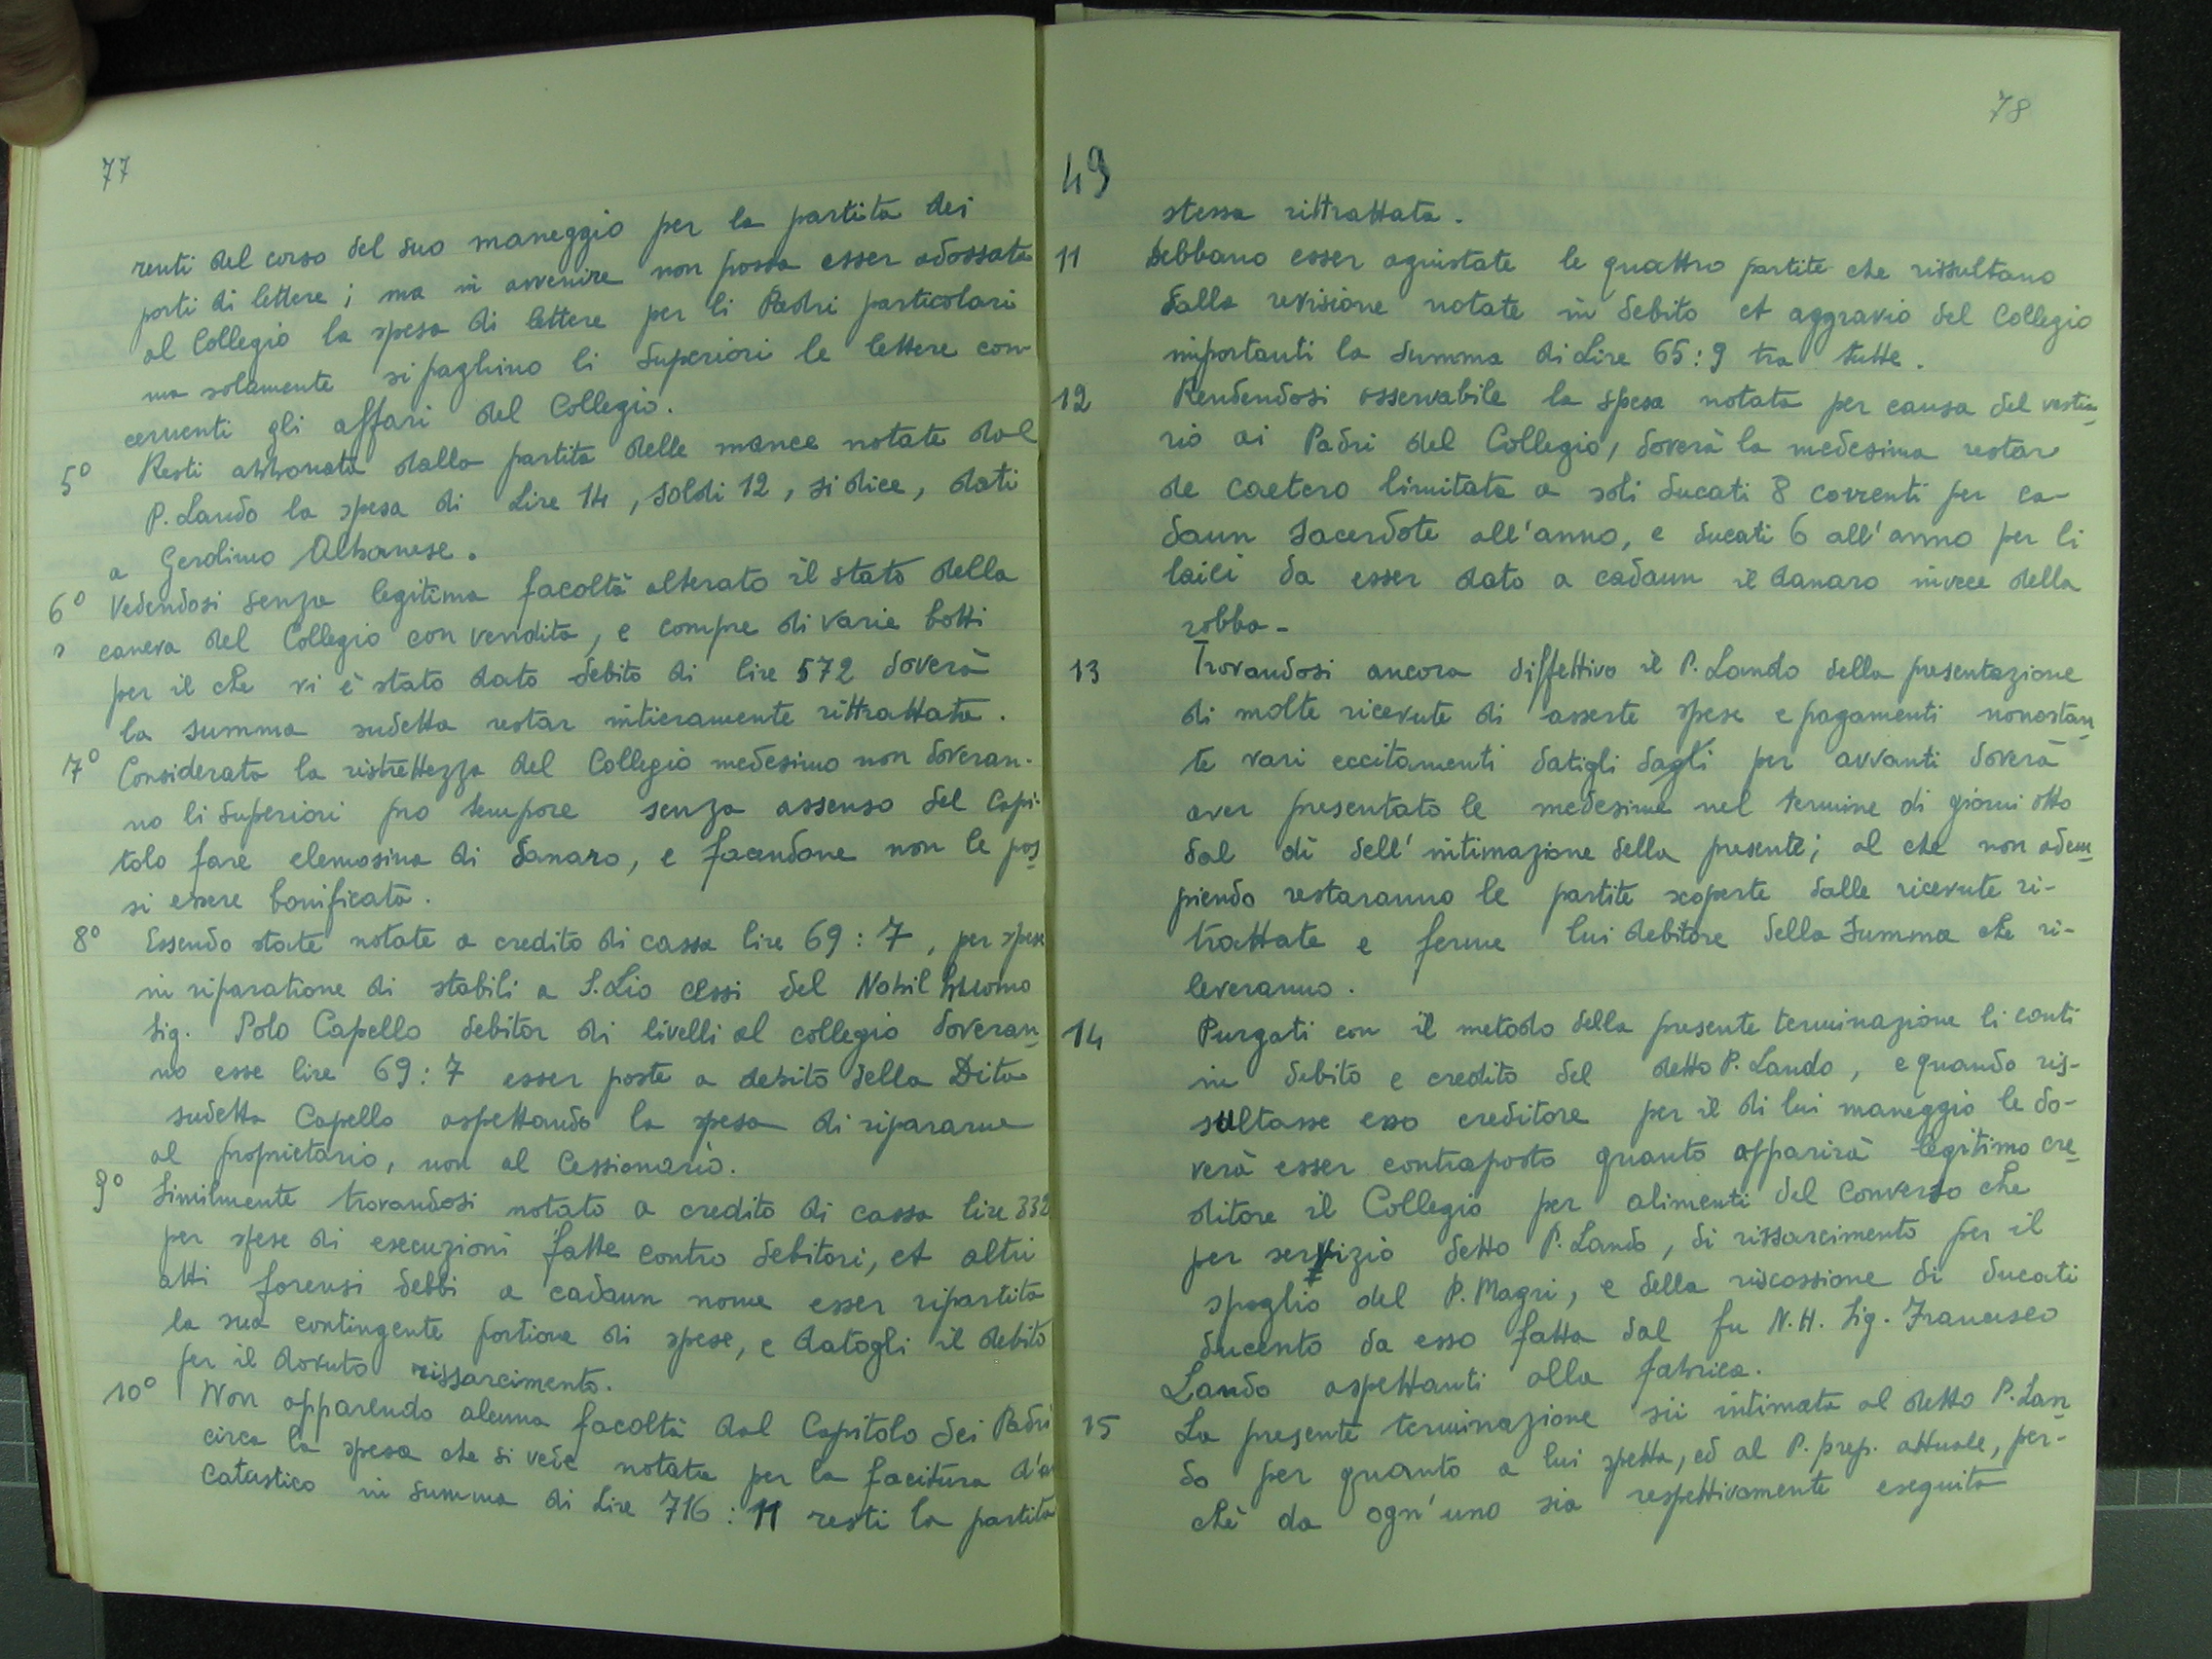 77
renti del corso del suo maneggio per la partita dei
porti di lettere; ma in avvenire non possa esser adossata
al Collegio la spesa di lettere per li Padri particolari
ma solamente si paghino li Superiori le lettere con-
cernenti gli affari del Collegio.
5° Resti abbonata dalla partita delle mance notate dal
P. Lando la spesa di Lire 14, soldi 12, si dice, dati
a Gerolimo Albanese.
6° Vedendosi senza legitima facoltà alterato il stato della
caneva del Collegio con vendita, e compre di varie botti
per il che vi è stato dato debito di lire 572 doverà
la summa sudetta restar intieramente rittrattata.
7° Considerata la ristrettezza del Collegio medesimo non doveran-
no li Superiori pro tempore senza assenso del Capi-
tolo fare elemosina di danaro, e facendone non le pos
si essere bonificata.
8° Essendo state notate a credito di cassa lire 69:7, per spese
in riparatione di stabili a S. Lio Cessi del Nobil Huomo
Sig. Polo Capello debitor di livelli al collegio doveran
no esse lire 69:7 esser poste a debito della Dita
sudetta Capello aspettando la spesa di ripararne
al proprietario, non al Cessionario.
9° Similmente trovandosi notato a credito di cassa lire 332
per spese di esecuzioni fatte contro debitori, et altri
atti forensi debbi a cadaun nome esser ripartita
la sua contingente portione di spese, e datogli il debito
per il dovuto rissarcimento.
10° Non apparendo alcuna facoltà dal Capitolo dei Padri
circa la spesa che si vede notata per la facitura d'a
Catastico in summa di Lire 716:11 resti la partita
78
49
stessa rittrattata.
11 Debbano esser agiustate le quattro partite che rissultano
dalla revisione notate in debito et aggravio del Collegio
importanti la Summa di Lire 65:9 tra tutte.
12 Rendendosi osservabile la spesa notata per causa del vestia
rio ai Padri del Collegio, doverà la medesima restar
de caetero limitata a soli ducati 8 correnti per ca-
daun Sacerdote all'anno, e ducati 6 all'anno per li
laici da esser dato a cadaun il danaro invece della
robba-
13 Trovandosi ancora diffettivo il P. Lando della presentazione
di molte ricevute di asserte spese e pagamenti nonostan
te vari eccitamenti datigli dagli per avvanti doverà
aver presentato le medesime nel termine di giorni otto
dal dì dell'intimazione della presente; al che non adem
piendo restaranno le partite scoperte dalle ricevute ri-
trattate e ferme lui debitore della Summa che ri-
leveranno.
14 Purgati con il metodo della presente terminazione li conti
in debito e credito del detto P. Lando, e quando ris-
sultasse esso creditore per il di lui maneggio le do-
verà esser contraposto quanto apparirà legitimo cre
ditore il Collegio per alimenti del Converso che
per servizio detto P. Lando, di rissarcimento per il
spoglio del P. Magri, e della riscossione di ducati
ducento da esso fatta dal fu N.H. Sig. Francesco
Lando aspettanti alla fabrica.
15 La presente terminazione sii intimata al detto P. Lan
do per quanto a lui spetta, ed al P. prep. attuale, per-
chè da ogn'uno sia respettivamente eseguita